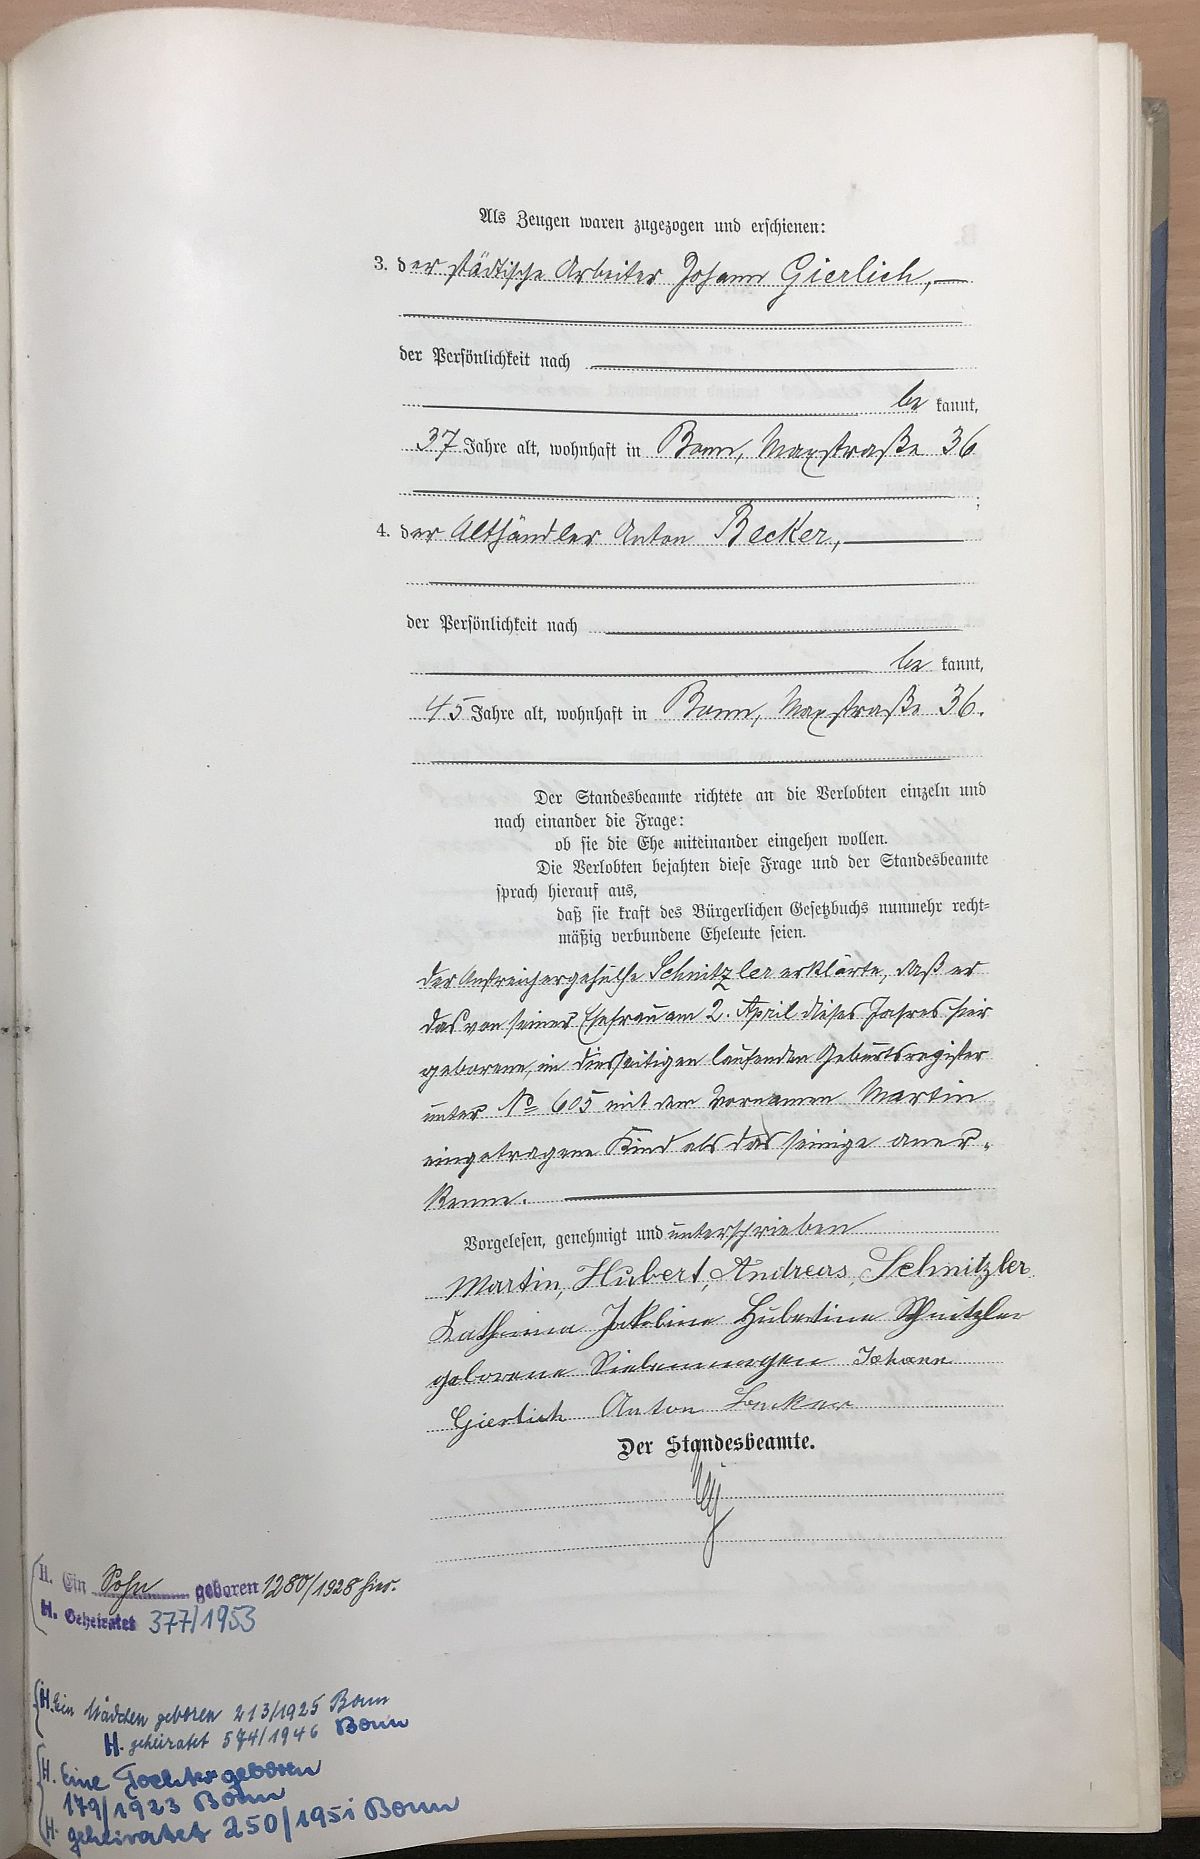 Als Zeugen waren zugezogen und erschienen:
3. der städtische Arbeiter Johann Gierlich,
der Persönlichkeit nach
be kannt,
37 Jahre alt, wohnhaft in Bonn, Maxstraße 36
;
4. der Althändler Anton Becker,
der Persönlichkeit nach
be kannt,
45 Jahre alt, wohnhaft in Bonn, Maxstraße 36.
Der Standesbeamte richtete an die Verlobten einzeln und
nach einander die Frage:
ob sie die Ehe miteinander eingehen wollen.
Die Verlobten bejahten diese Frage und der Standesbeamte
sprach hierauf aus,
daß sie kraft des Bürgerlichen Gesetzbuchs nunmehr recht-
mäßig verbundene Eheleute seien.
Der Anstreichergehülfe Schnitzler erklärte, daß er
das von seiner Ehefrau am 2. April dieses Jahres hier
geborene, im diesseitigen laufenden Geburtsregister
unter No 605 mit dem Vornamen Martin
eingetragene Kind als das seinige aner-
kenne.
Vorgelesen, genehmigt und unterschrieben
Martin, Hubert, Andreas, Schnitzler
Katharina Jakobine Hubertine Schnitzler
geborene Johann
Gierlich Anton Becker
Der Standesbeamte.
H. Ein Sohn geboren 1280/1928 hier.
H. Geheiratet 377/1953
H. Ein Mädchen geboren 213/1925 Bonn
H. geheiratet 574/1946 Bonn
H. Eine Tochter geboren
179/1923 Bonn
H. geheiratet 250/1951 Bonn